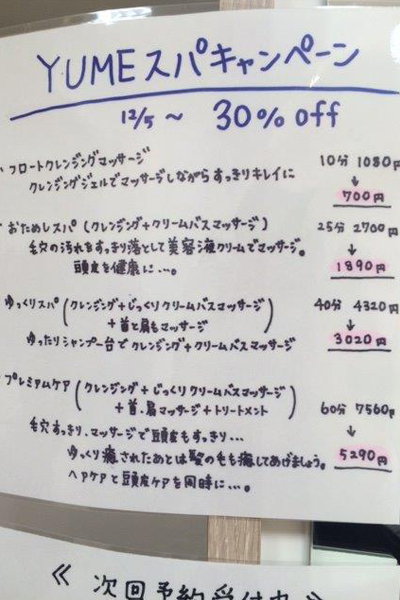 YUMEスパキャンペーン
12/5 ～ 30% off
・フロートクレンジングマッサージ 10分 1080円
クレンジングジェルでマッサージしながらすっきりキレイに ↓
700円
・おためしスパ (クレンジング+クリームバスマッサージ) 25分 2700円
毛穴の汚れをすっきり落として美容液クリームでマッサージ。 ↓
頭皮を健康に…。 1890円
ゆっくりスパ (クレンジング+じっくりクリームバスマッサージ 40分 4320円
+首と肩もマッサージ) ↓
ゆったりシャンプー台でクレンジング+クリームバスマッサージ 3020円
・プレミアムケア (クレンジング+じっくりクリームバスマッサージ
+首・肩マッサージ+トリートメント) 60分 7560円
毛穴すっきり、マッサージで頭皮もすっきり… ↓
ゆっくり癒されたあとは髪の毛も癒してあげましょう。 5290円
ヘアケアと頭皮ケアを同時に…。
≪ 次回予約受付中 ≫